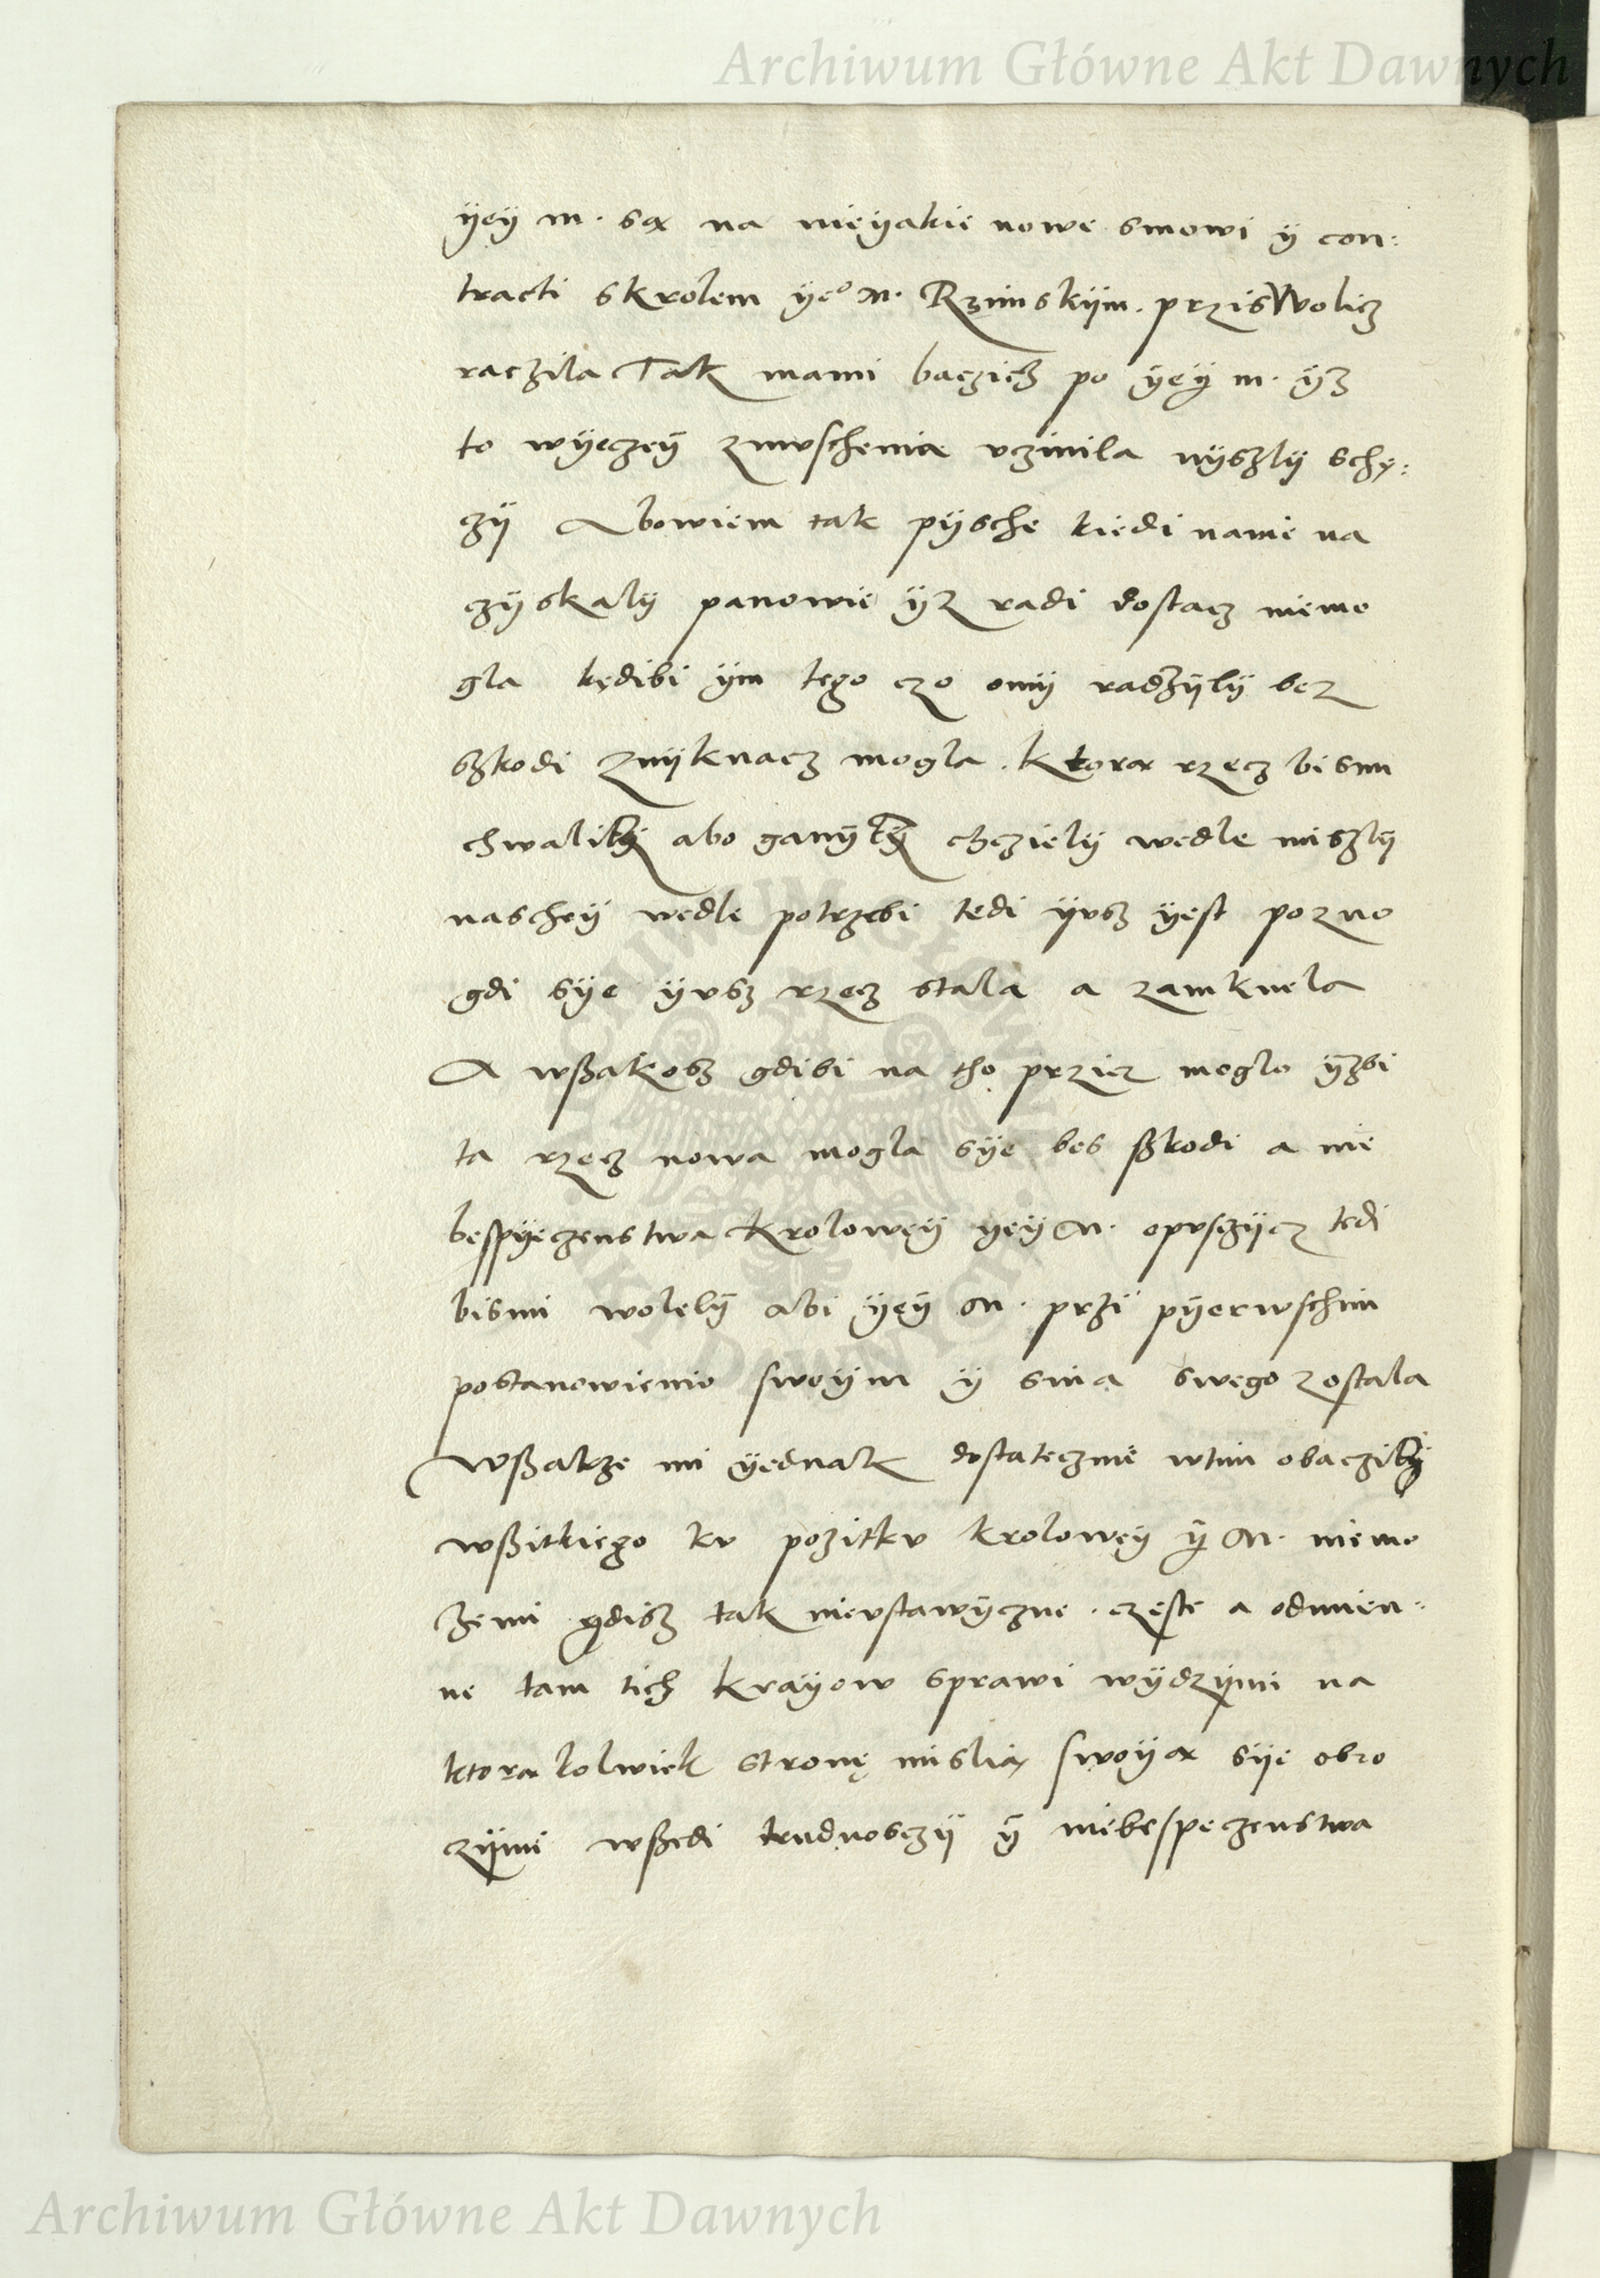 Archiwum Główne Akt Dawnych
ÿeÿ m. są na nieÿakie nowe smowi ÿ con:
tracti skrolem ÿeº M. Rzimskÿm. prziswolicz
raczila Tak mami baczicz po ÿeÿ m. ÿz
to wÿeczeÿ zmuschenia vczinila nÿszlÿ schę:
czÿ Abowiem tak pÿsche kiedi namie na
czÿskalÿ panowie ÿz radi dostacz niemo
gla kędibi ÿm tego czo onÿ radzÿlÿ bez
szkodi znÿknacz mogla. Ktora rzecz bismi
chwalicz abo ganÿcz chczielÿ wedle miszlÿ
nascheÿ wedle potrzebi tedi ÿusz ÿest pozno
gdi sÿe ÿusz rzecz stala a zamknela
A wßakosz gdibi na tho przicz moglo ÿzbi
ta rzecz nowa mogla sÿe bes ßkodi a nie
bespÿeczenstwa Kroloweÿ ÿeÿ M. opusczÿcz tedi
bismi wolelÿ abi ÿeÿ M. przi pÿerwschim
postanowienio swoÿm ÿ sina swego zostala
Wßakze mi ÿednak dostatecznie wtim obaczicz
wßitkiego ku pozitku kroloweÿ ÿ M. niemo
zemi gdisz tak nieustawÿczne. częste a odmien:
ne tam tich kraÿow sprawi wÿdzÿmi na
ktora kolwiek stronę mislią swoÿą sÿe obro
czÿmi wßedi trudnosczÿ ÿ niebespeczenstwa
Archiwum Główne Akt Dawnych